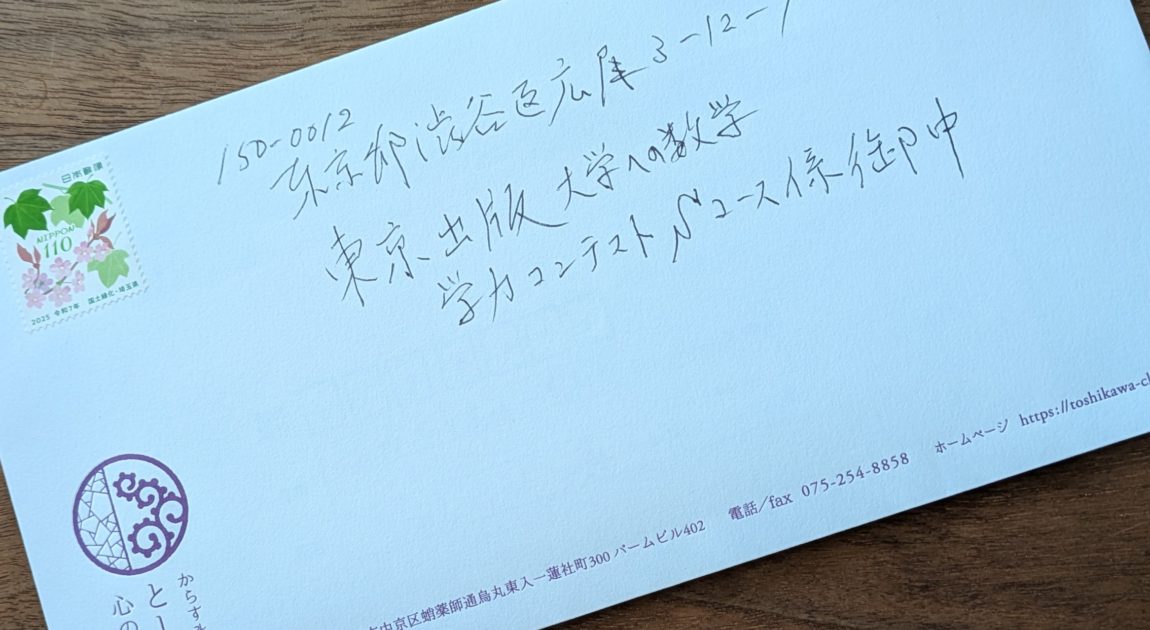 150-0012
東京都渋谷区広尾3-12-7
東京出版 大学への数学
学力コンテストSコース係御中
日本郵便
NIPPON
110
2025 令和7年 国土緑化・埼玉県
中京区蛸薬師通烏丸東入一蓮社町300 パームビル402 電話/fax 075-254-8858 ホームページ https://toshikawa-cl
からすま
と
心の